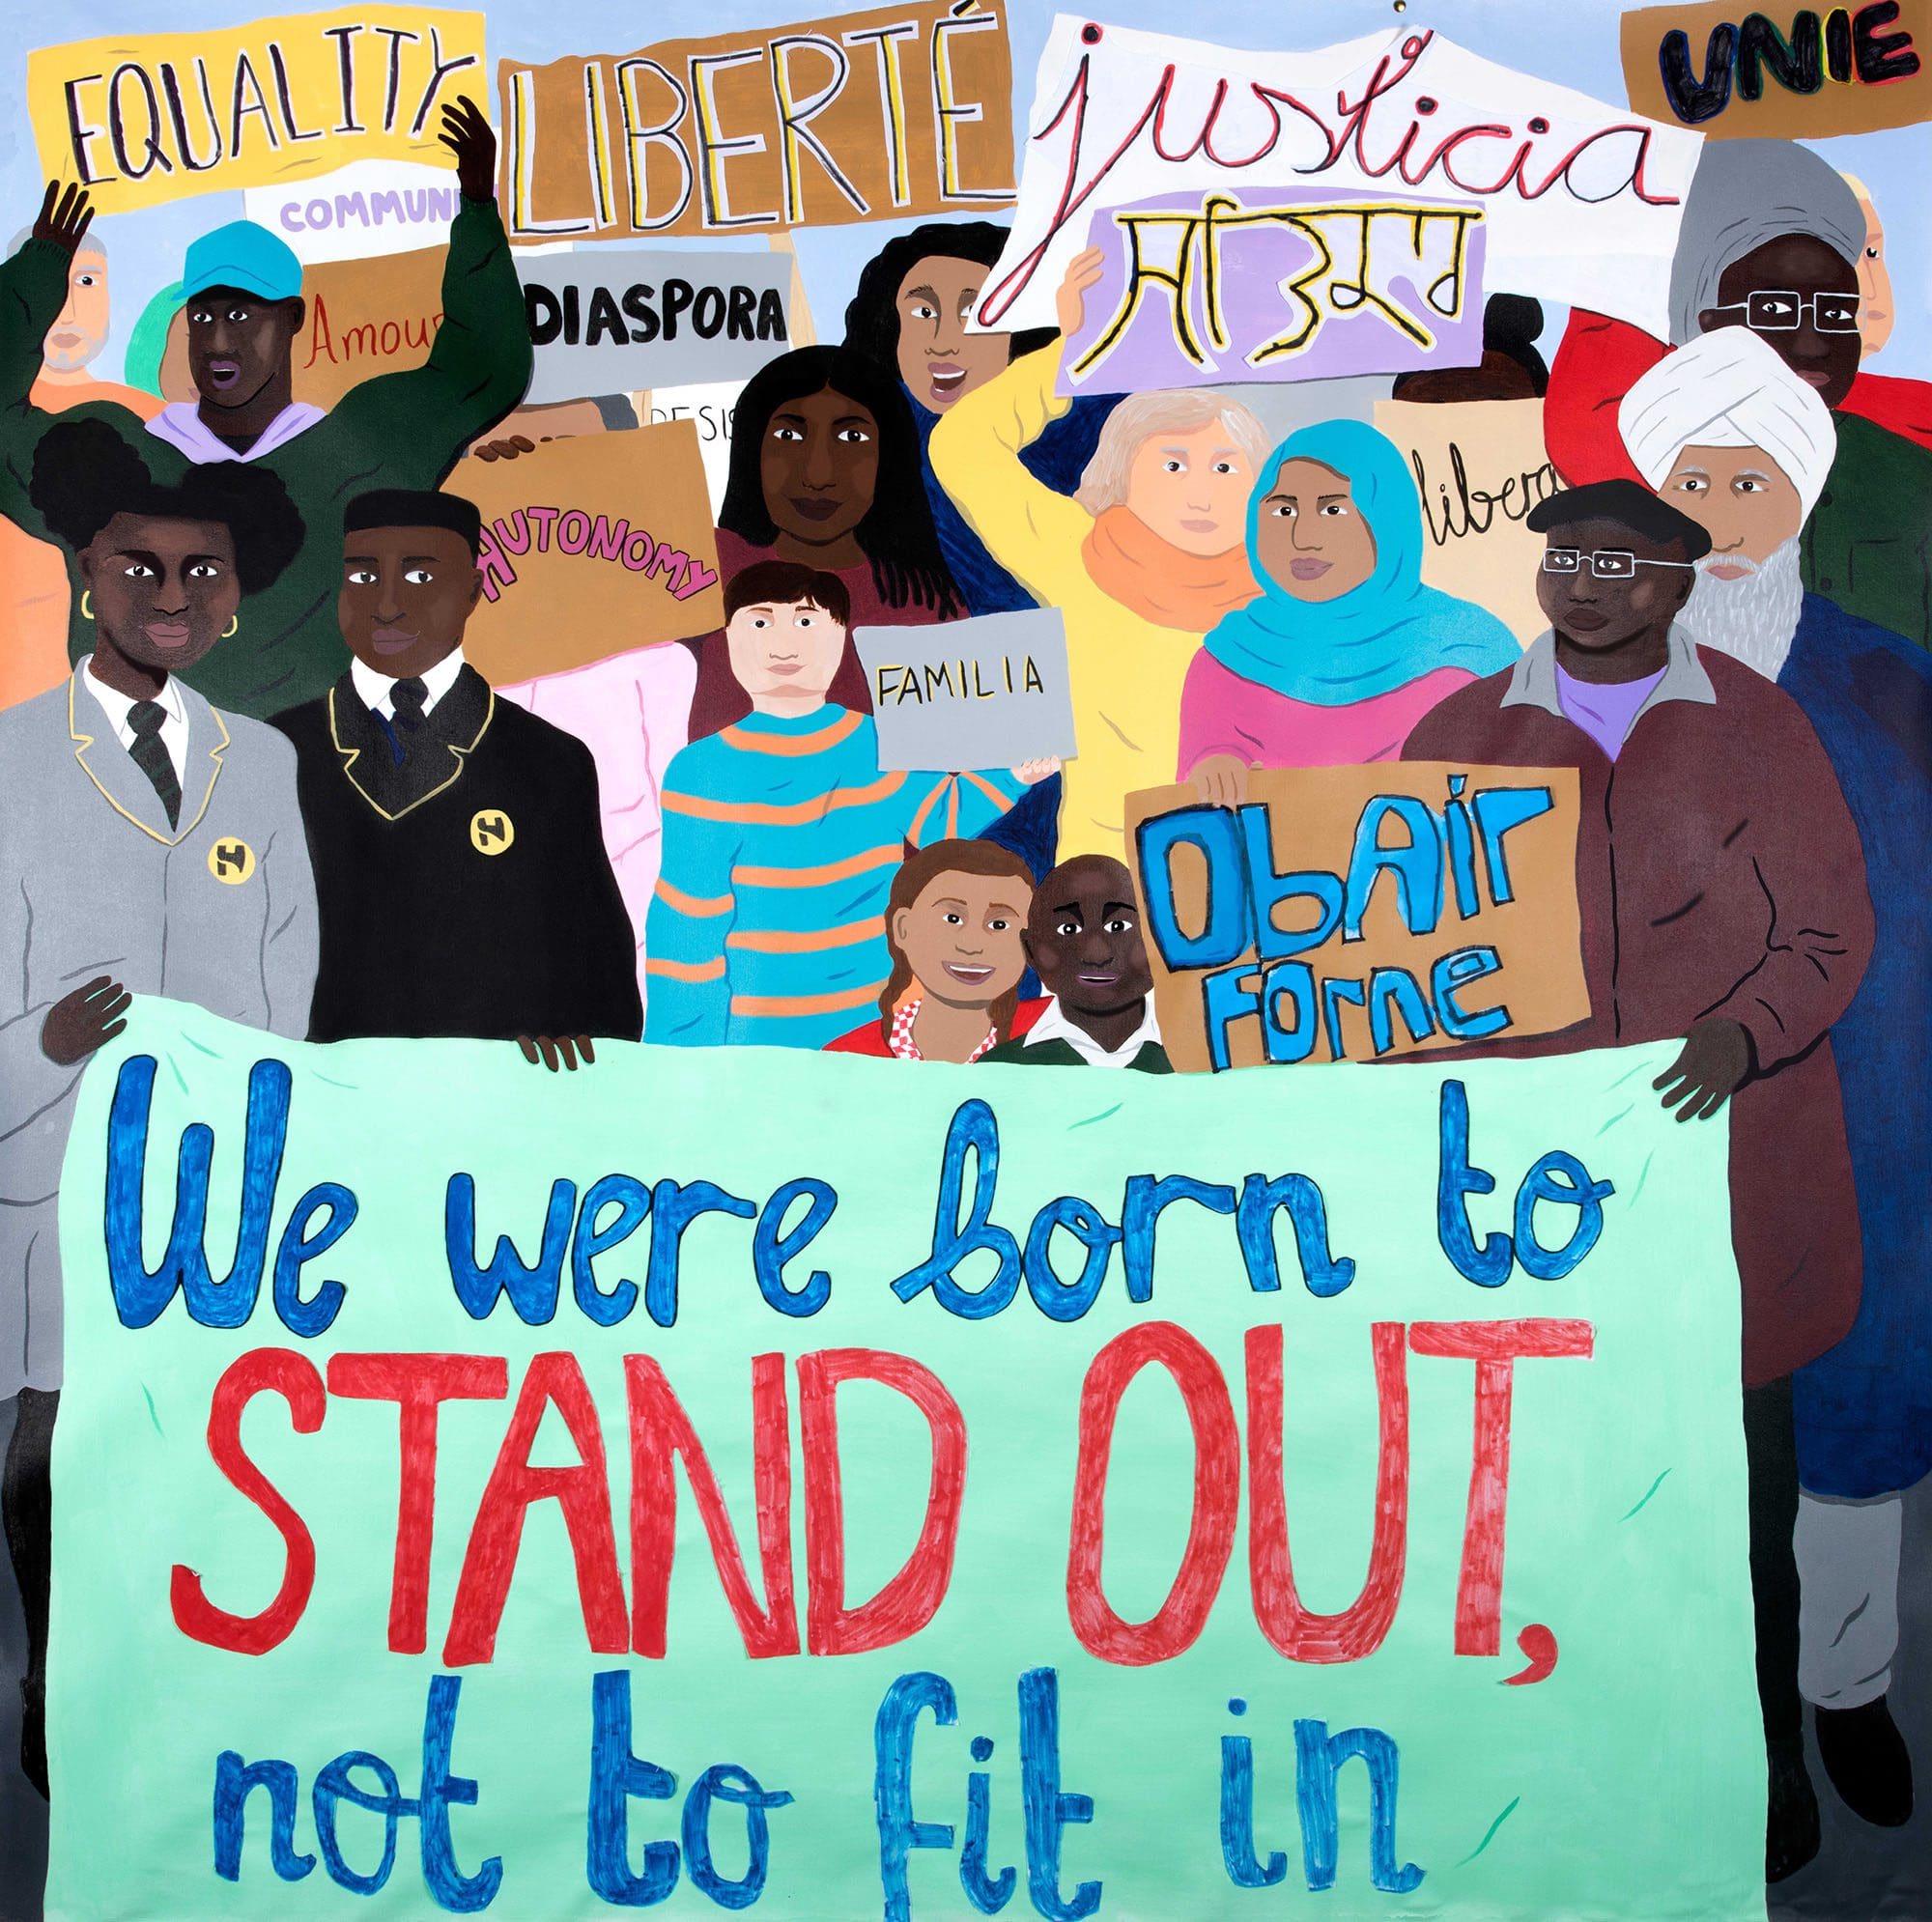 EQUALITY
LIBERTÉ
justicia
UNIE
COMMUNI
Amour
DIASPORA
AUTONOMY
libera
FAMILIA
ObAir
Forne
We were born to
STAND OUT,
not to fit in